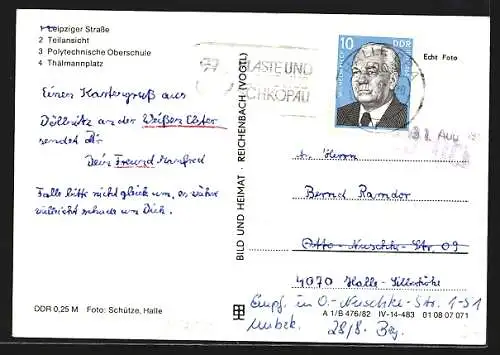 1 Leipziger Straße
2 Teilansicht
3 Polytechnische Oberschule
4 Thälmannplatz
Einen Kartengruß aus
Döllnitz an der Weißen Elster
sendet Dir
Dein Freund Manfred
Falls bitte nicht
Dich.
DDR 0,25 M Foto: Schütze, Halle
BILD UND HEIMAT · REICHENBACH (VOGTL)
LASTE UND
CHKOPAU
10 DDR
Echt Foto
31. AUG. 19
Herrn
Bernd Ramdor
Otto-Nuschke-Str. 09
4070 Halle-Silberhöhe
Empf. in O.-Nuschke-Str. 1-51
unbek. 28/8. Bez.
A 1/B 476/82 IV-14-483 01 08 07 071